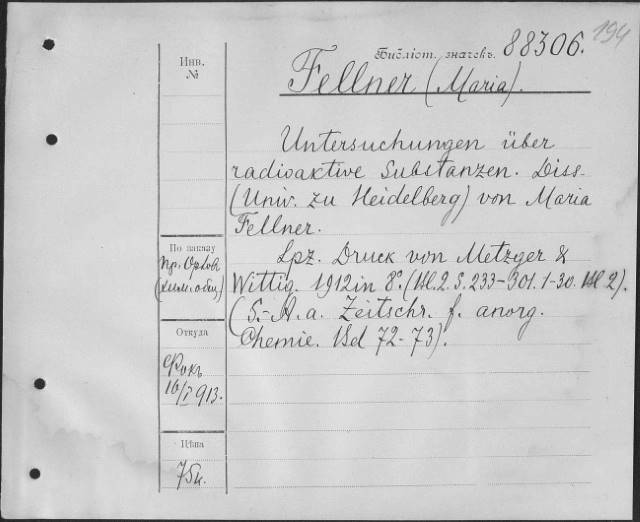 194
Библіот. значекъ. 88306.
Fellner (Maria).
Инв.
№
Untersuchungen über
radioaktive Substanzen. Diss.
(Univ. zu Heidelberg) von Maria
Fellner.
Lpz. Druck von Metzger &
Wittig. 1912 in 8°. (Bl. 2. S. 233-301. 1-30. Bl 2).
(S.-A. a. Zeitschr. f. anorg.
Chemie. Bd 72-73).
По заказу
Пр. Орлов
Откуда
Фокъ
16/I 913.
Цѣна
75к.